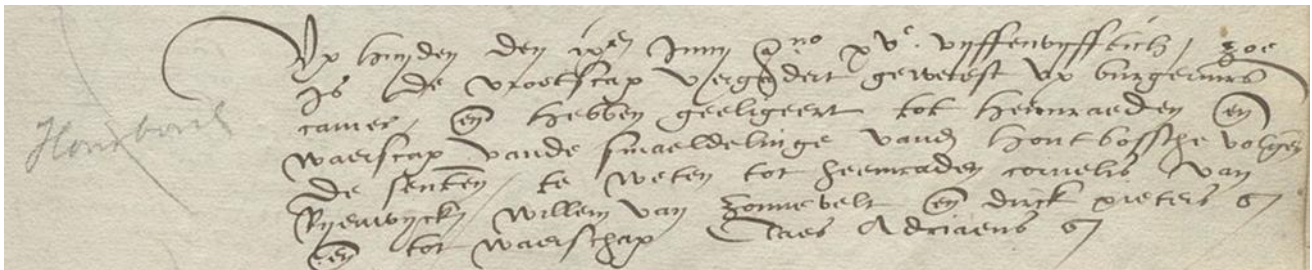 Up huyden den ixen Junij Ano xvc vyffenvyfftich, zoe
Is de vroetscap vergadert geweest up burgermrs
camer, en hebben geeligeert tot heemraeden en
Hontbosch
waerscap vande smaeldelinge vand hontbossche volgen
de sentten, te weten tot heemraden cornelis van
Ryerwyck, willem van zonnevelt en dirck pieters
en tot waerschap Claes Adriaens